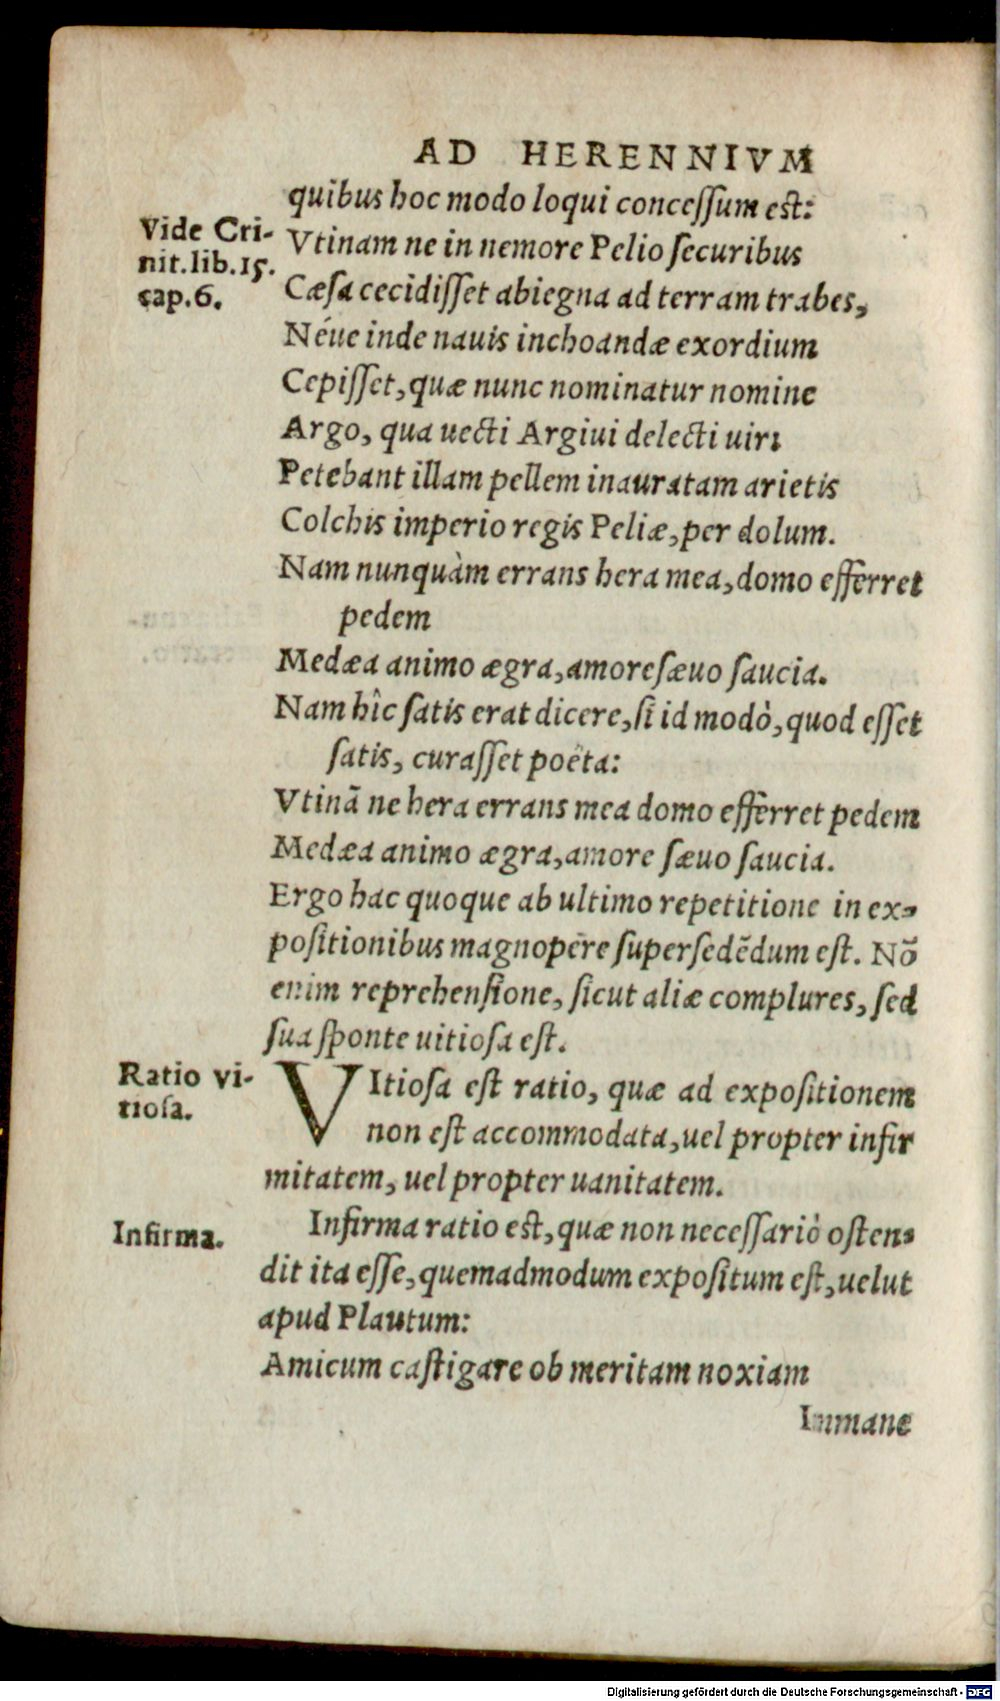 AD HERENNIVM
quibus hoc modo loqui conceſſum eſt:
Vide Cri-
nit. lib. 15.
cap. 6.
Vtinam ne in nemore Pelio ſecuribus
Cæſa cecidiſſet abiegna ad terram trabes,
Néue inde nauis inchoandæ exordium
Cepiſſet, quæ nunc nominatur nomine
Argo, qua uecti Argiui delecti uiri
Petebant illam pellem inauratam arietis
Colchis imperio regis Peliæ, per dolum.
Nam nunquàm errans hera mea, domo efferret
pedem
Medæa animo ægra, amore ſæuo ſaucia.
Nam hîc ſatis erat dicere, ſi id modò, quod eſſet
ſatis, curaſſet poëta:
Vtinã ne hera errans mea domo efferret pedem
Medæa animo ægra, amore ſæuo ſaucia.
Ergo hac quoque ab ultimo repetitione in ex-
poſitionibus magnopere ſuperſedẽdum eſt. Nõ
enim reprehenſione, ſicut aliæ complures, ſed
ſua ſponte uitioſa eſt.
Ratio vi-
tioſa.
VItioſa eſt ratio, quæ ad expoſitionem
non eſt accommodata, uel propter infir
mitatem, uel propter uanitatem.
Infirma.
Infirma ratio eſt, quæ non neceſſariò oſten-
dit ita eſſe, quemadmodum expoſitum eſt, uelut
apud Plautum:
Amicum caſtigare ob meritam noxiam
Immane
Digitalisierung gefördert durch die Deutsche Forschungsgemeinschaft - DFG